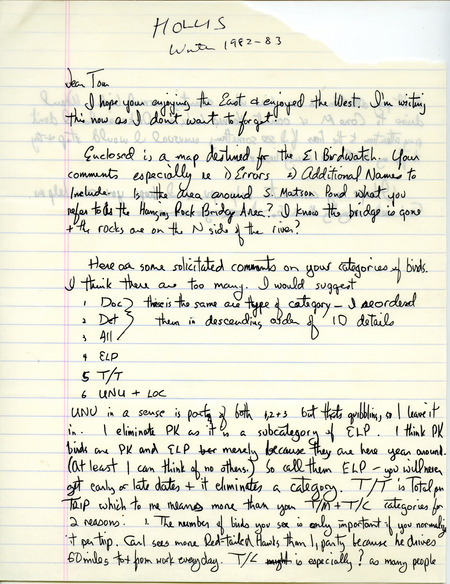 HOLLIS
Winter 1982-83
Dear Tom
I hope your enjoying the East & enjoyed the West. I'm writing
this now as I don't want to forget.
Enclosed is a map destined for the EI Birdwatch. Your
comments especially re 1) Errors 2) Additional Names to
Include. Is the area around S. Matson Pond what you
refer to as the Hanging Rock Bridge Area? I know the bridge is gone
+ the rocks are on the N side of the river?
Here are some solicitated comments on your categories of birds.
I think there are too many. I would suggest
1 Doc } these is the same type of category - I reordered
2 Det } them in descending order of ID details
3 All
4 ELP
5 T/T
6 UNU + LOC
UNU in a sense is party of both 1,2+3 but thats quibbling, so I leave it
in. I eliminate PK as it is a subcategory of ELP. I think PK
birds are PK and ELP merely because they are here year around.
(at least I can think of no others.) So call them ELP - you will never
get early or late dates + it eliminates a category. T/T is Total per
TRIP which to me means more than your T/M + T/C categories for
2 reasons: 1. The number of birds you see is only important if you normally
it per trip. Carl sees more Red-tailed Hawks than I, partly because he drives
60 miles to + from work everyday. T/C is especially ? as many people